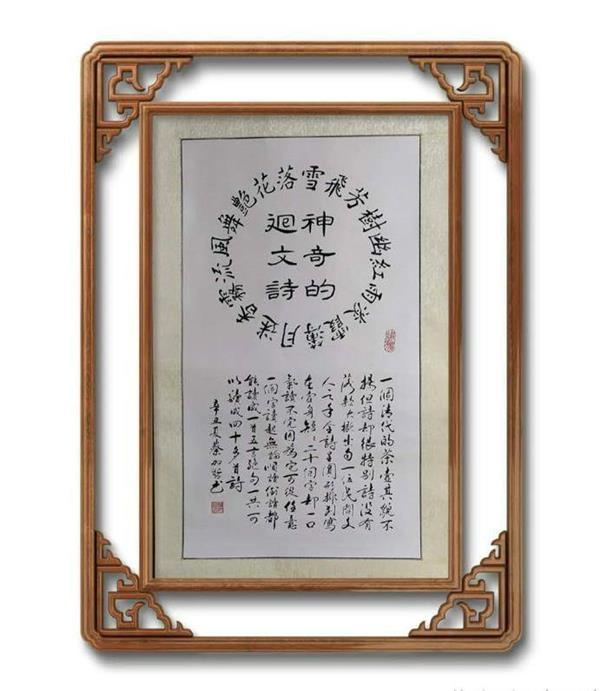 落雪飛芳樹幽紅雨淡霞薄月迷香霧流風舞艷花
神奇的
迴文詩
一個清代的茶壺其貌不
揚但詩却很特別詩沒有
落款大概出自一位民間文
人之手全詩呈圓形排列寫
在壺身二十個字却一口
氣讀不完因為它可從任意
一個字讀起無論順讀倒讀都
能讀成一首五言絕句一共可
以讀成四十多首詩
辛丑夏蔡